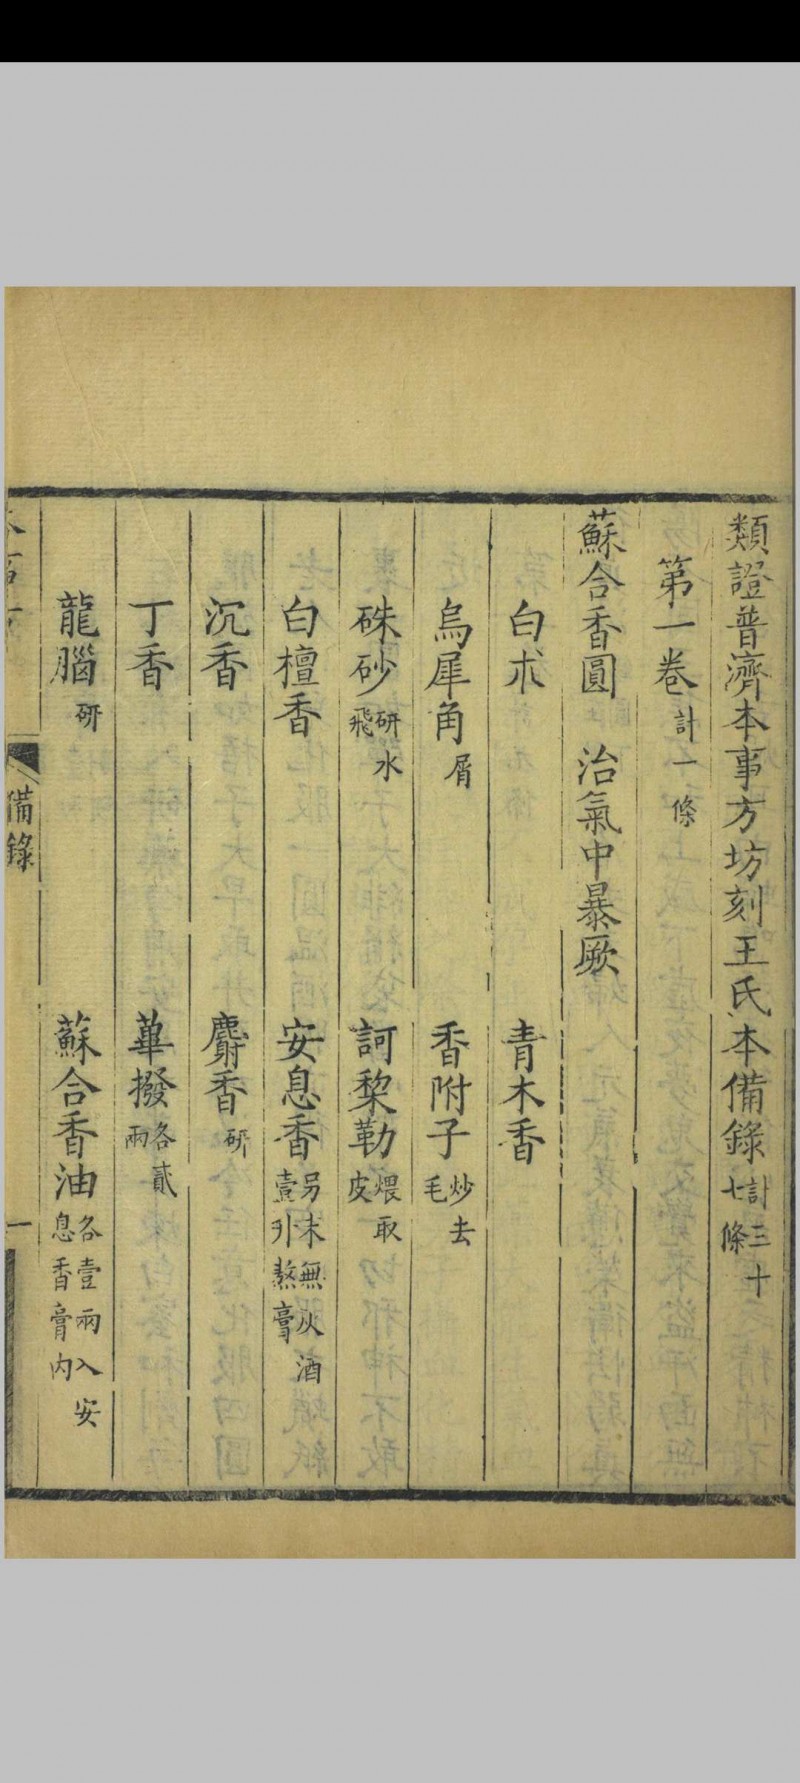 類證普濟本事方坊刻王氏本備錄計三十七條
第一卷計一條
蘇合香圓　治氣中暴厥
白朮　青木香
烏犀角屑　香附子炒去毛
硃砂研水飛　訶黎勒煨取皮
白檀香　安息香另末無灰酒壹升熬膏
沉香　麝香研
丁香　蓽撥各貳兩
龍腦研　蘇合香油各壹兩入安息香膏內
備錄
一